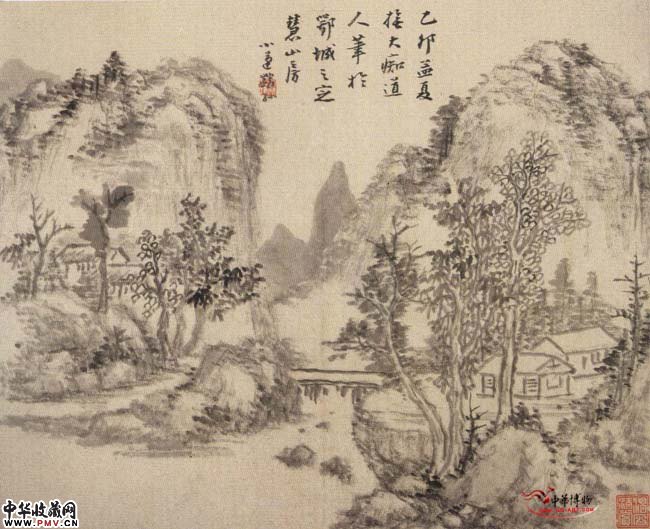 己卯孟夏
大痴道
人筆於
鄂城之定
慧山房
中华收藏网
WWW.PMV.CN
中華博物